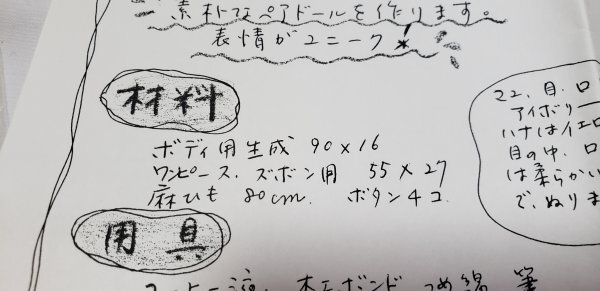 素朴なペアドールを作ります。
表情がユニーク
材料
ボディ用生成 90×16
ワンピース、ズボン用 55×27
麻ひも 80cm. ボタン4コ
用具
木工ボンド つめ綿 筆
マユ、目、口
アイボリー
ハナはイエロ
目の中、口
は柔らかい
で、ぬりま